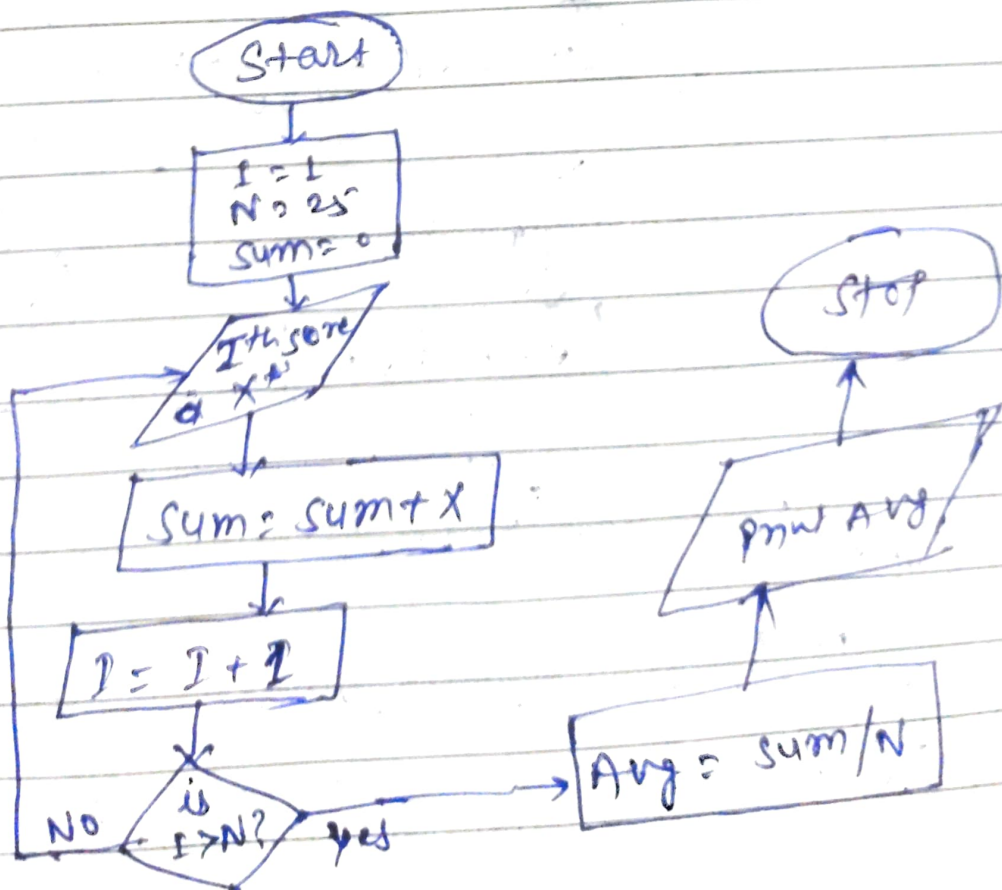 Start
I = 1
N = 25
sum = 0
Ith sore
X
Sum = sum + X
I = I + 1
is
I > N?
NO
yes
Avg = sum/N
print Avg
Stop